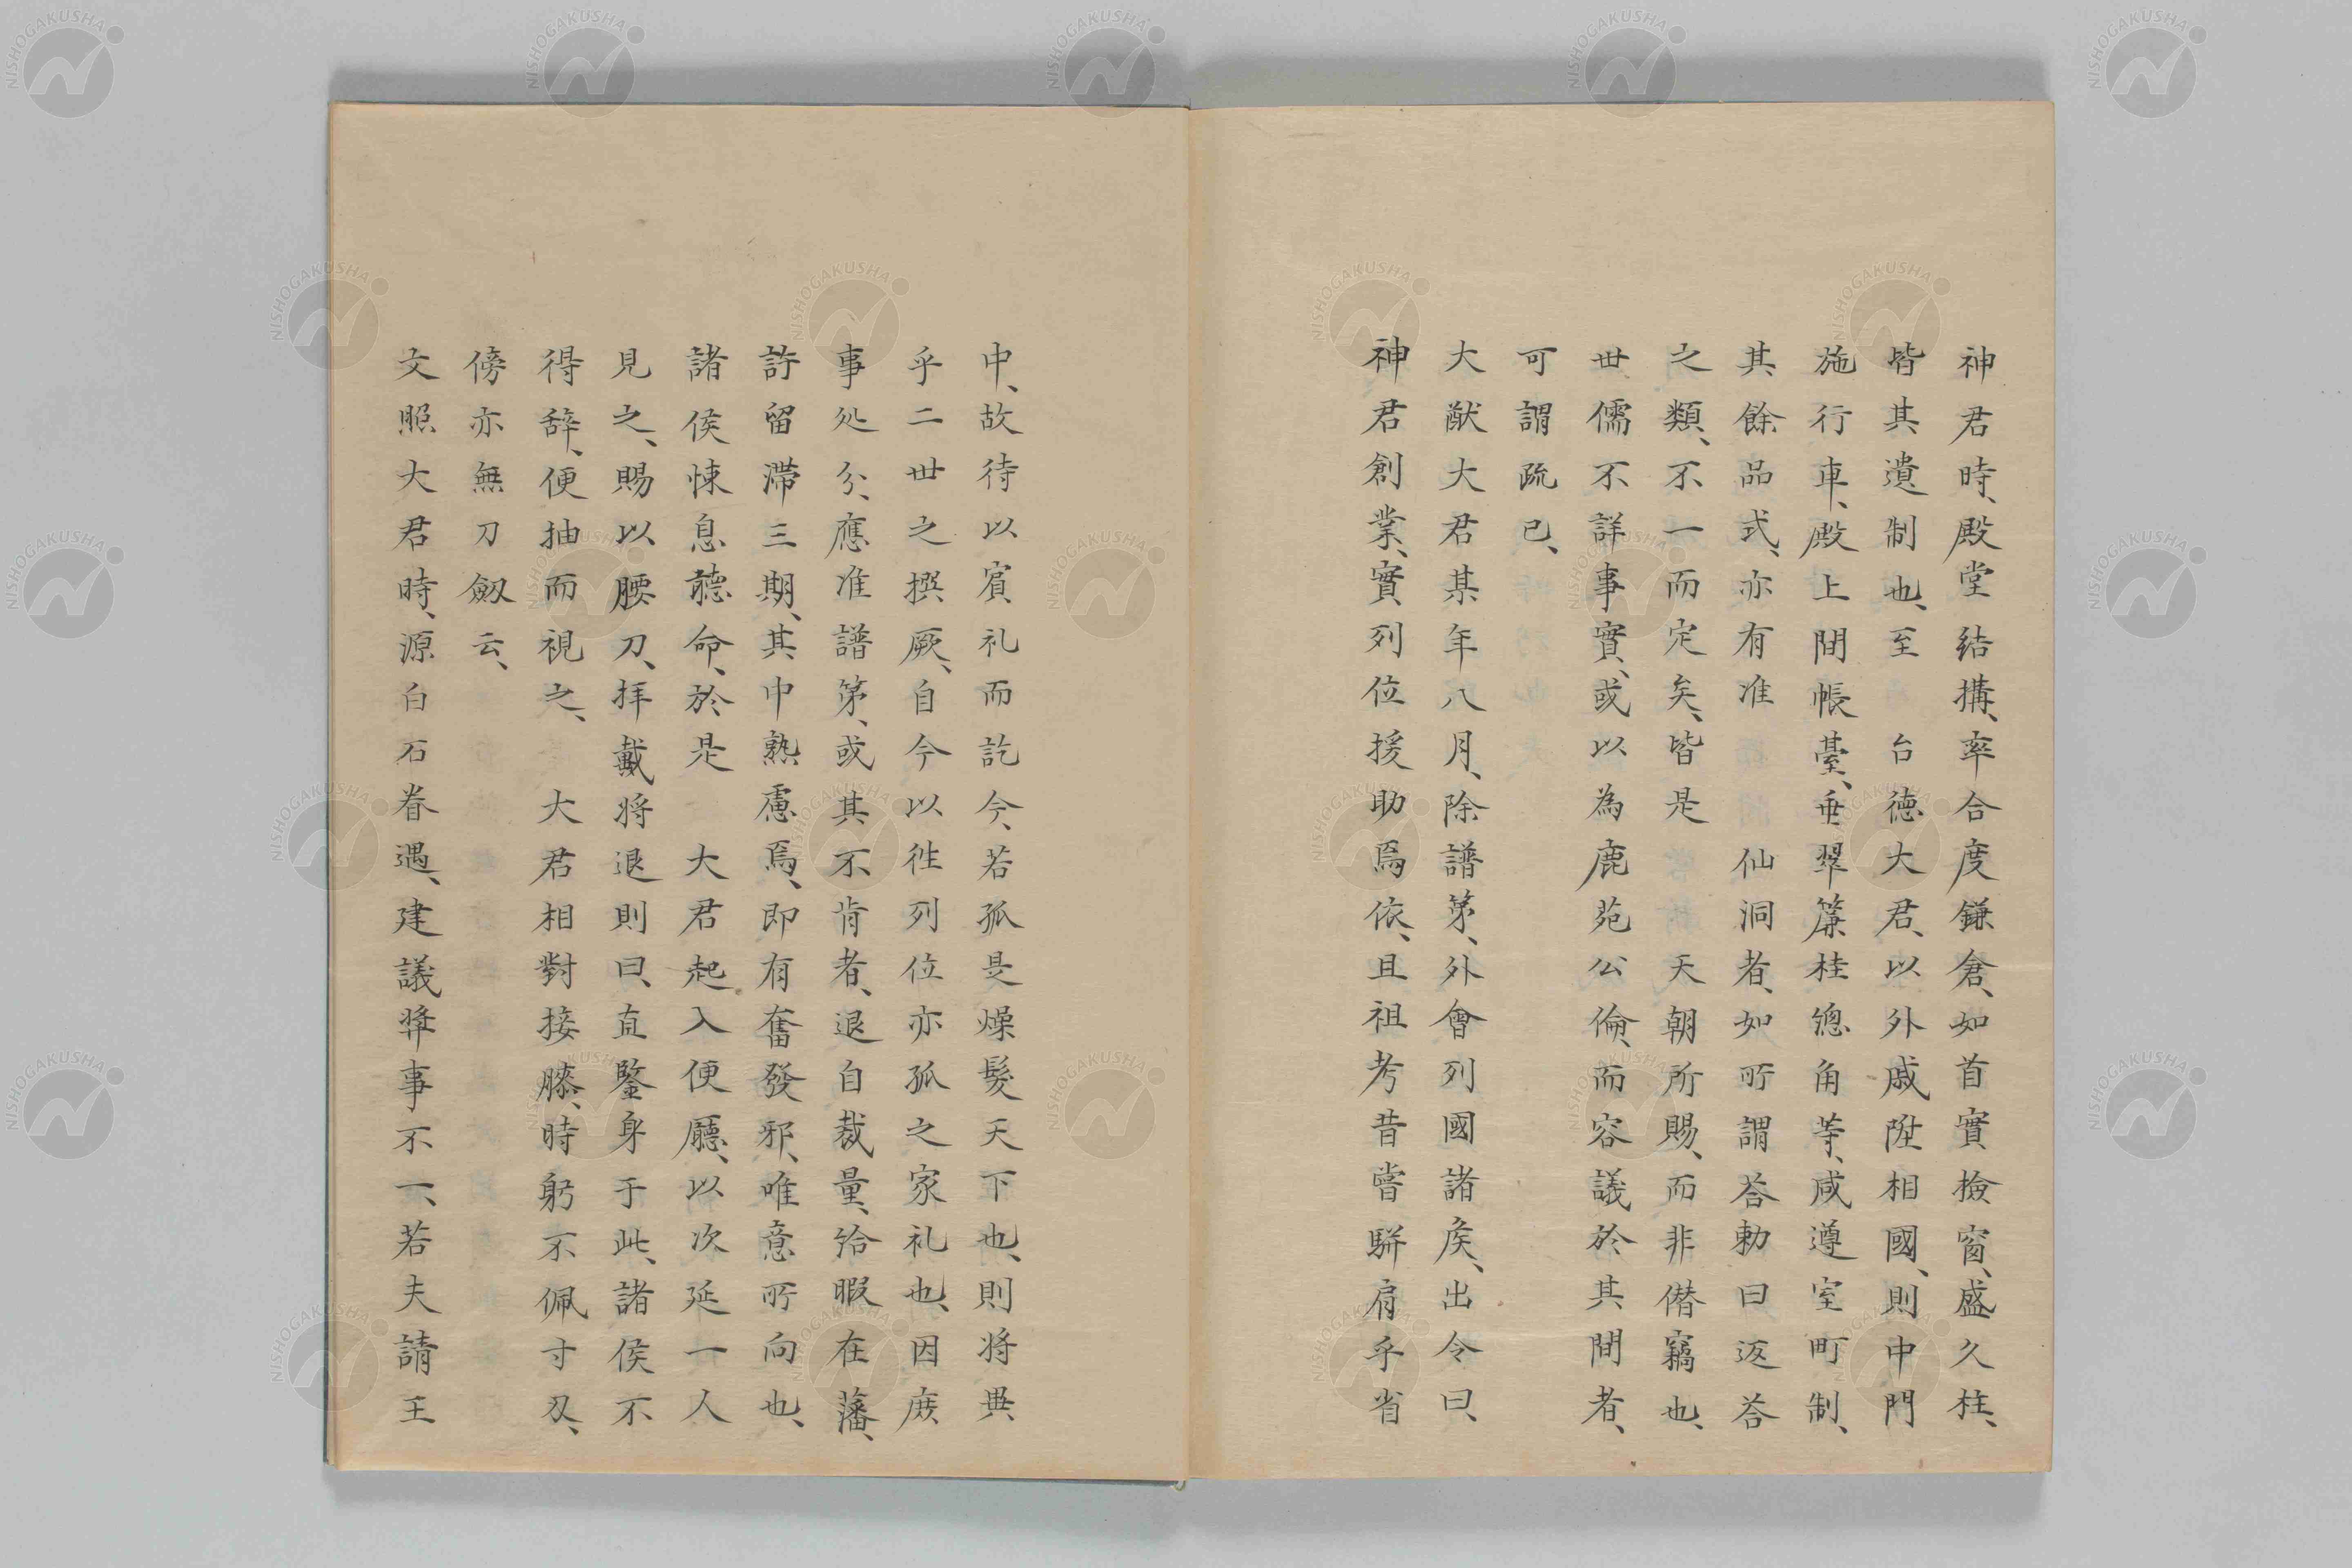 神君時、殿堂結構、率合度鎌倉、如首實撿窗、盛久柱、
皆其遺制也、至　台德大君、以外戚陞相國、則中門
施行車、殿上間帳臺、垂翠簾桂總角等、咸遵室町制、
其餘品式、亦有准　仙洞者、如所謂答勅曰返答
之類、不一而定矣、皆是　天朝所賜、而非僭竊也、
世儒不詳事實、或以為鹿苑公倫、而容議於其間者、
可謂疏已、
大猷大君某年八月、除譜第、外會列國諸矦、出令曰、
神君創業、實列位援助焉依、且祖考昔嘗駢肩乎省
中、故待以賔礼而訖今、若孤是燥髮天下也、則将典
乎二世之撰厥、自今以徃列位亦孤之家礼也、因庻
事処分、應准譜第、或其不肯者、退自裁量、給暇在藩、
許留滯三期、其中熟慮焉、即有奮發邪、唯意所向也、
諸侯悚息聽命、於是　大君起入便廳、以次延一人
見之、賜以腰刀、拝戴将退則曰、直鑒身于此、諸侯不
得辞、便抽而視之、　大君相對接膝、時躬不佩寸刄、
傍亦無刀劔云、
文照大君時、源白石眷遇、建議举事不一、若夫請王
NISHOGAKUSHA